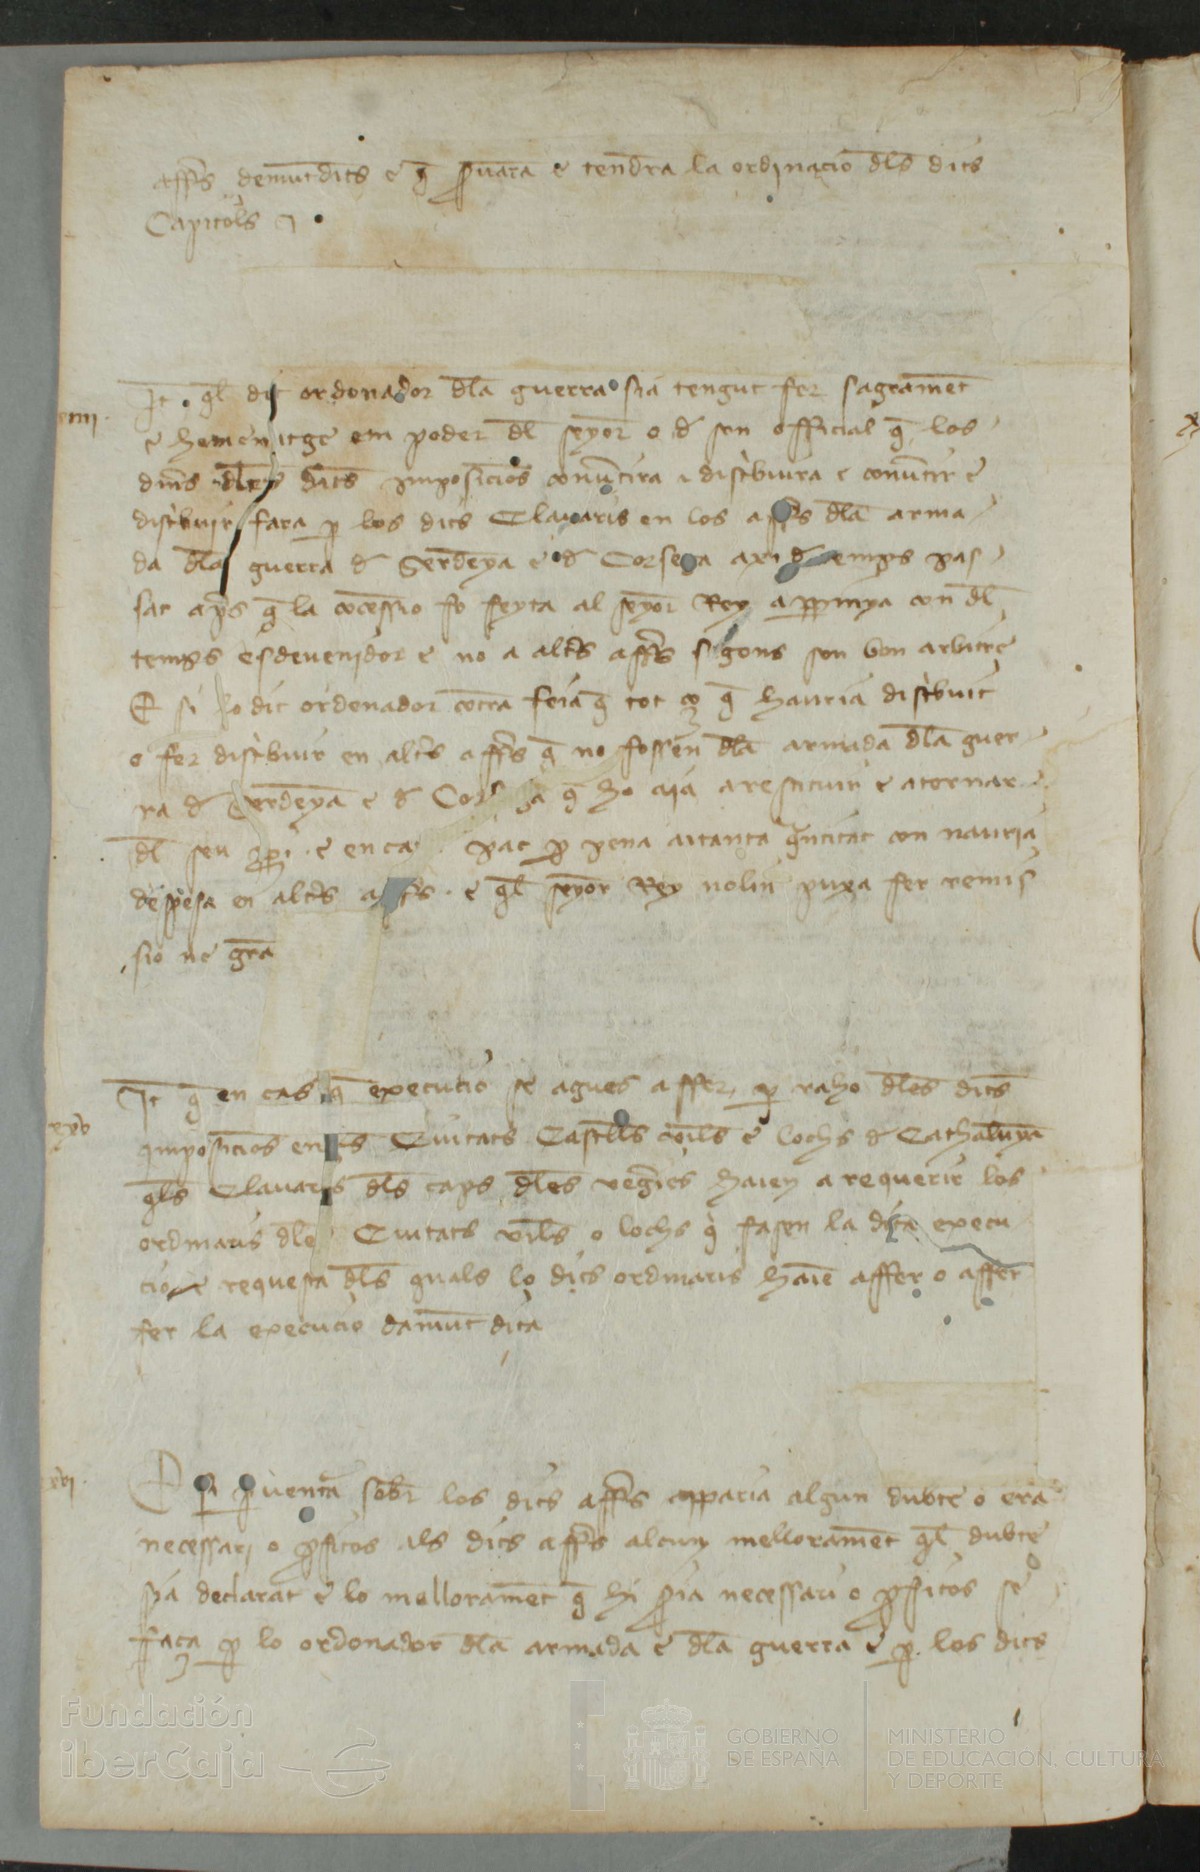 affers demuntdits e q̄ servara e tendra la ordinacio dl̄s dits
Capitols
xiiii.
It q̄l dit ordonador dl̄a guerra sia tengut fer sagramēt
e homenatge em poder dl̄ senyor o d̄ son official q̄ los
dn̄s dl̄es dits imposicios cōuertira e distribuira e cōuertir e
distribuir fara ꝑ los dits Clauaris en los affers dl̄a arma
da dl̄a guerra d̄ Serdeya e d̄ Corsega axi d̄ temps pas
sat ap̄s q̄ la cōcessio fo feyta al senyor Rey con dl̄
temps esdeuenidor e no a altr̄s aff̄rs segons son bon arbitre
E si lo dit ordenador cōtra feia q̄ tot ço q̄ hauria distribuit
o fer distribuir en altr̄s aff̄rs q̄ no fossen dl̄a armada dl̄a guer
ra d̄ Serdeya e d̄ Cors a q̄ ho aia a restituir e a tornar
dl̄ seu ꝓpi e en ca pac ꝑ pena aitanta q̄ntitat con hauria
despesa en altr̄s aff̄rs e q̄l senyor Rey nolin puxa fer remis
sio ne gr̄a
xv
It q̄ en cas q̄ execucio se agues affer ꝑ raho dl̄es dits
imposicios en les Ciutats Castells viles e lochs d̄ Cathalunya
q̄ls Clauaris dl̄s caps dl̄es vegeries haien a requerir los
ordinaris dl̄es Ciutats viles o lochs q̄ fasen la dita execu
cio e requesta dl̄s quals lo dits ordinaris haiē affer o affer
fer la execucio damūt dita
xvi.
E si ꝑ uentura sobr̄ los dits aff̄rs apparia algun dubte o era
necessari o ꝓfitos als dits aff̄rs alcun melloramēt q̄l dubte
sia declarat e lo melloramēt q̄ hi sia necessari o ꝓfitos se
faça ꝑ lo ordonador dl̄a armada e dl̄a guerra e ꝑ los dits
Fundación
iberCaja
GOBIERNO
DE ESPAÑA
MINISTERIO
DE EDUCACIÓN, CULTURA
Y DEPORTE